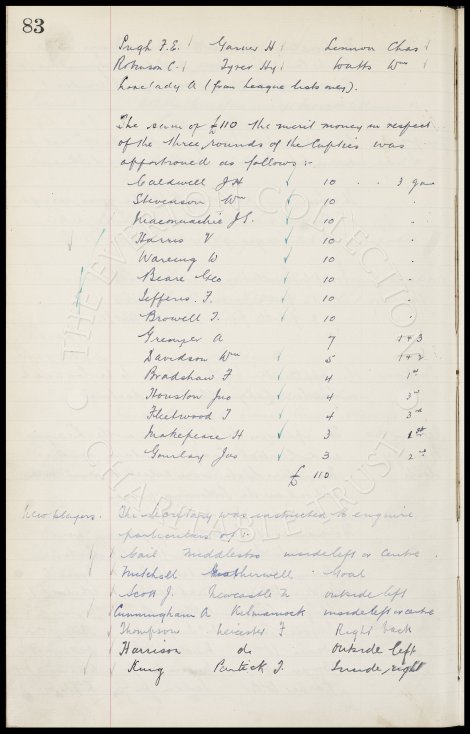 83
Pugh F.E. Garner H Lennon Chas
Robinson C. Tyrer Hy Watts Wm
Lovelady A (from League lists over).
The sum of £110 the merit money in respect
of the three rounds of the Cupties was
apportioned as follows :-
Caldwell J H 10 3 ga
Stevenson Wm 10 "
Maconnachie J S. 10 "
Harris V 10 "
Wareing W 10 "
Beare Geo 10 "
Jefferis F. 10 "
Browell T. 10 "
Grenyer A 7 1 + 3
Davidson Wm 5 1 + 2
Bradshaw F 4 1st
Houston Jno 4 3rd
Fleetwood T 4 3rd
Makepeace H 3 1st
Gourlay Jas 3 2nd
£ 110
New Players. The Secretary was instructed to enquire
particulars of :-
Cail Middlesbro inside left or centre
Mitchell Motherwell Goal
Scott J. Newcastle U outside left
Cunningham A Kilmarnock inside left or centre
Thompson Leicester F Right back
Harrison do outside left
King Partick T. Inside right
THE EVERTON COLLECTION
CHARITABLE TRUST